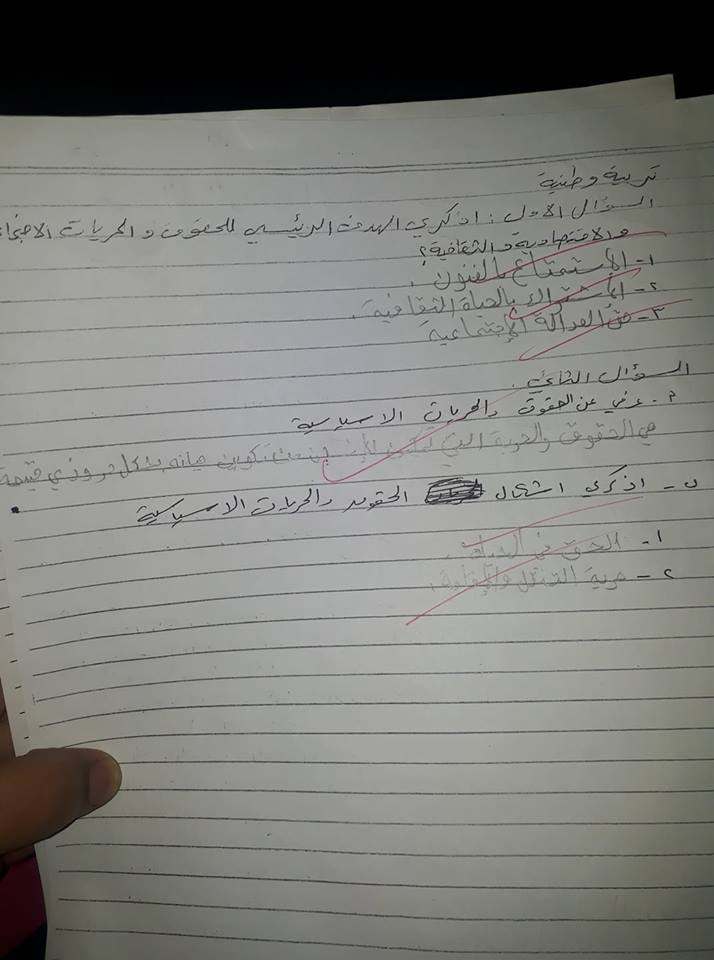 تربية وطنية
السؤال الاول : اذكري الهدف الرئيسي للحقوق والحريات
والاقتصادية والثقافية ؟
١- الاستمتاع بالفنون .
٢- الاشتراك بالحياة الثقافية .
٣- العدالة الاجتماعية
السؤال الثاني .
عرفي الحقوق والحريات الاساسية
هي الحقوق والحرية التي بشكل قيمة
ب- اذكري اشكال الحقوق والحريات الاساسية
١- الحق في الحياة .
٢- حرية التنقل والإقامة .